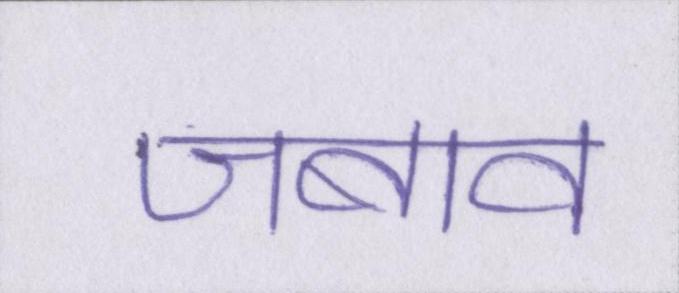 जबाव